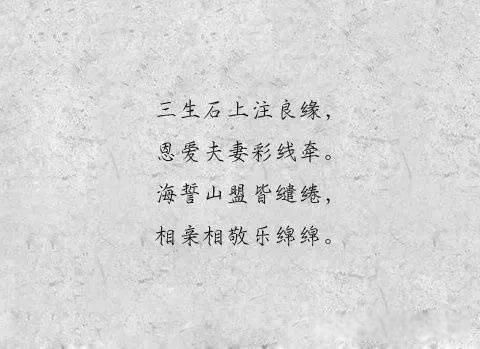 三生石上注良缘，
恩爱夫妻彩线牵。
海誓山盟皆缱绻，
相亲相敬乐绵绵。